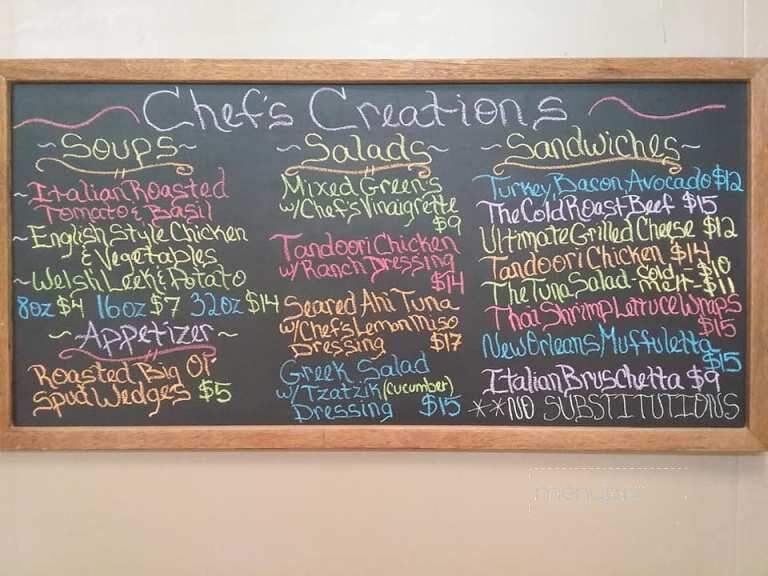 Chef's Creations
~Soups~
~Italian Roasted
Tomato & Basil
~English Style Chicken
& Vegetables
~Welsh Leek & Potato
8oz $4 16oz $7 32oz $14
~Appetizer~
Roasted Big Ol'
Spud Wedges $5
~Salads~
Mixed Greens
w/Chef's Vinaigrette
$9
Tandoori Chicken
w/Ranch Dressing
$14
Seared Ahi Tuna
w/Chef's Lemon Miso
Dressing $17
Greek Salad
w/Tzatzik (cucumber)
Dressing $15
~Sandwiches~
Turkey, Bacon, Avocado $12
The Cold Roast Beef $15
Ultimate Grilled Cheese $12
Tandoori Chicken $14
The Tuna Salad - Cold - $10
Melt - $11
Thai Shrimp Lettuce Wraps
$15
New Orleans Muffuletta
$15
Italian Bruschetta $9
**NO SUBSTITUTIONS